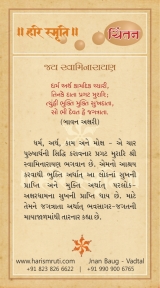 ॥ હરિ સ્મૃતિ ॥
ચિંતન
જય સ્વામિનારાયણ
ધર્મ અર્થ કામાદિક ચ્યારી,
તિનકે દાતા પ્રગટ મુરારિ;
ભુક્તિ મુક્તિ સુખદાતા,
સો ભી દેવત હે જગત્રાતા.
(બાવન અક્ષરી)
ધર્મ, અર્થ, કામ અને મોક્ષ – એ ચાર
પુરુષાર્થની સિદ્ધિ કરાવનાર પ્રગટ મુરારિ શ્રી
સ્વામિનારાયણ ભગવાન છે. એમનો આશ્રય
કરવાથી ભુક્તિ અર્થાત્ આ લોકનાં સુખની
પ્રાપ્તિ અને મુક્તિ અર્થાત્ પરલોક-
અક્ષરધામના સુખની પ્રાપ્તિ થાય છે. માટે
તેમને જગત્રાતા અર્થાત્ ભવસાગર-જગતની
માયાજાળમાંથી તારનાર કહ્યા છે.
www.harismruti.com | Jnan Baug - Vadtal
+91 823 826 6622 | +91 990 900 6765